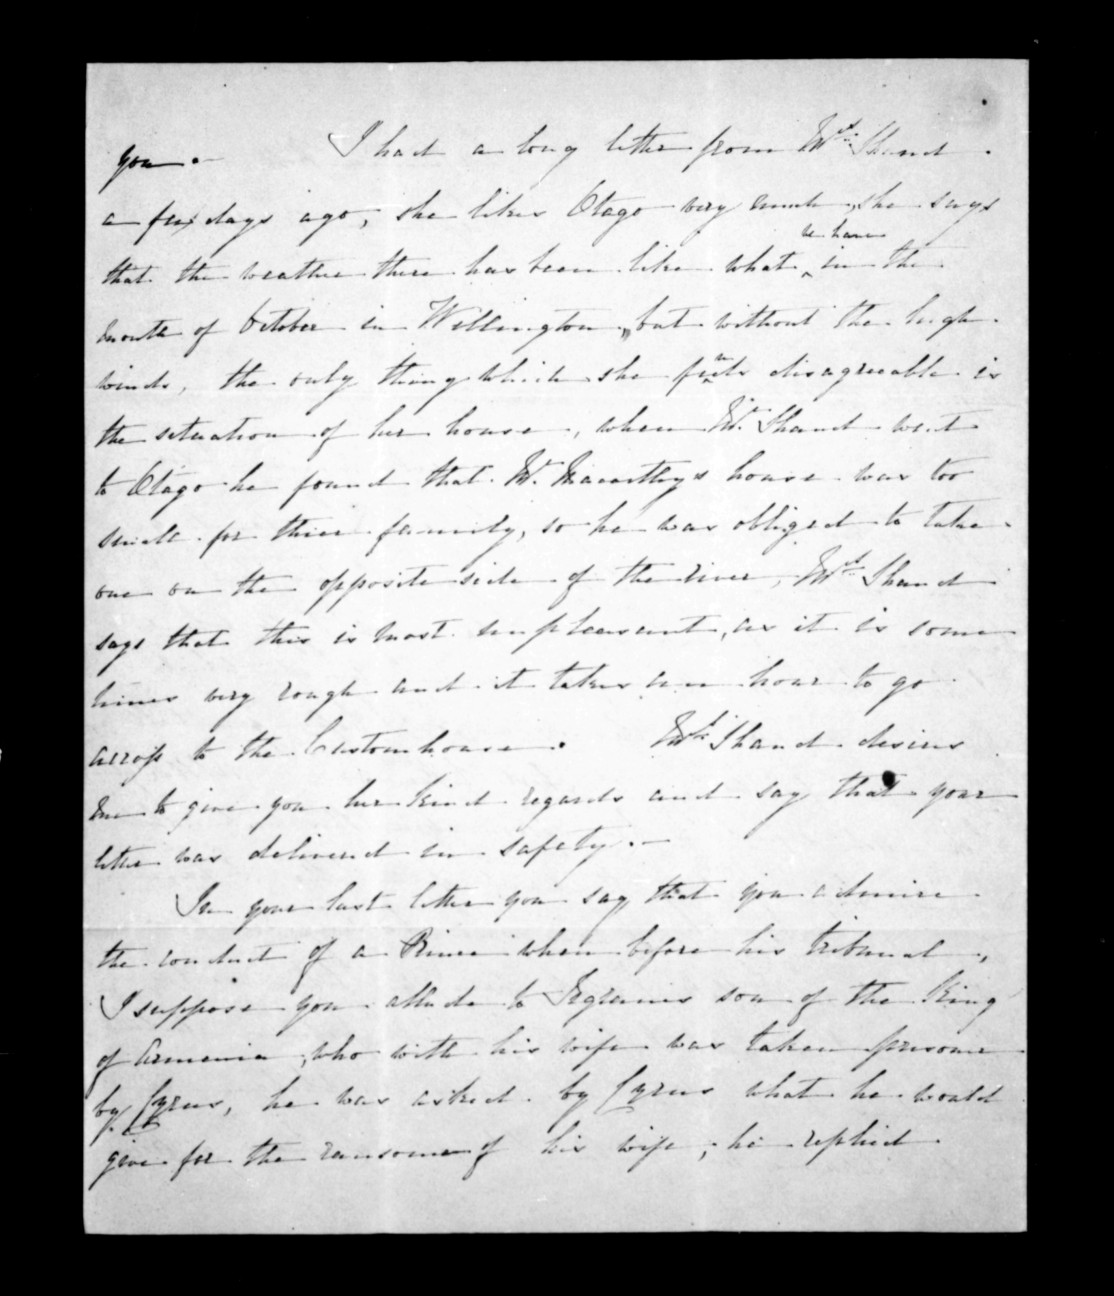 you. — I had a long letter from Mrs. Shand
a few days ago, she likes Otago very much, she says
that the weather there has been like what we have in the
month of October in Wellington, but without the high
winds, the only thing which she finds disagreeable is
the situation of her house, when Mr. Shand went
to Otago he found that Mr. Macarthy's house was too
small for thier family, so he was obliged to take
one on the opposite side of the river, Mrs. Shand
says that this is most unpleasant, as it is some
times very rough and it takes an hour to go
across to the Customhouse. Mrs. Shand desires
me to give you her kind regards and say that your
letter was delivered in safety. —
In your last letter you say that you admire
the conduct of a Prince when before his tribunal,
I suppose you allude to Tigranes son of the King
of Armenia, who with his wife was taken prisoner
by Cyrus, he was asked by Cyrus what he would
give for the ransome of his wife; he replied